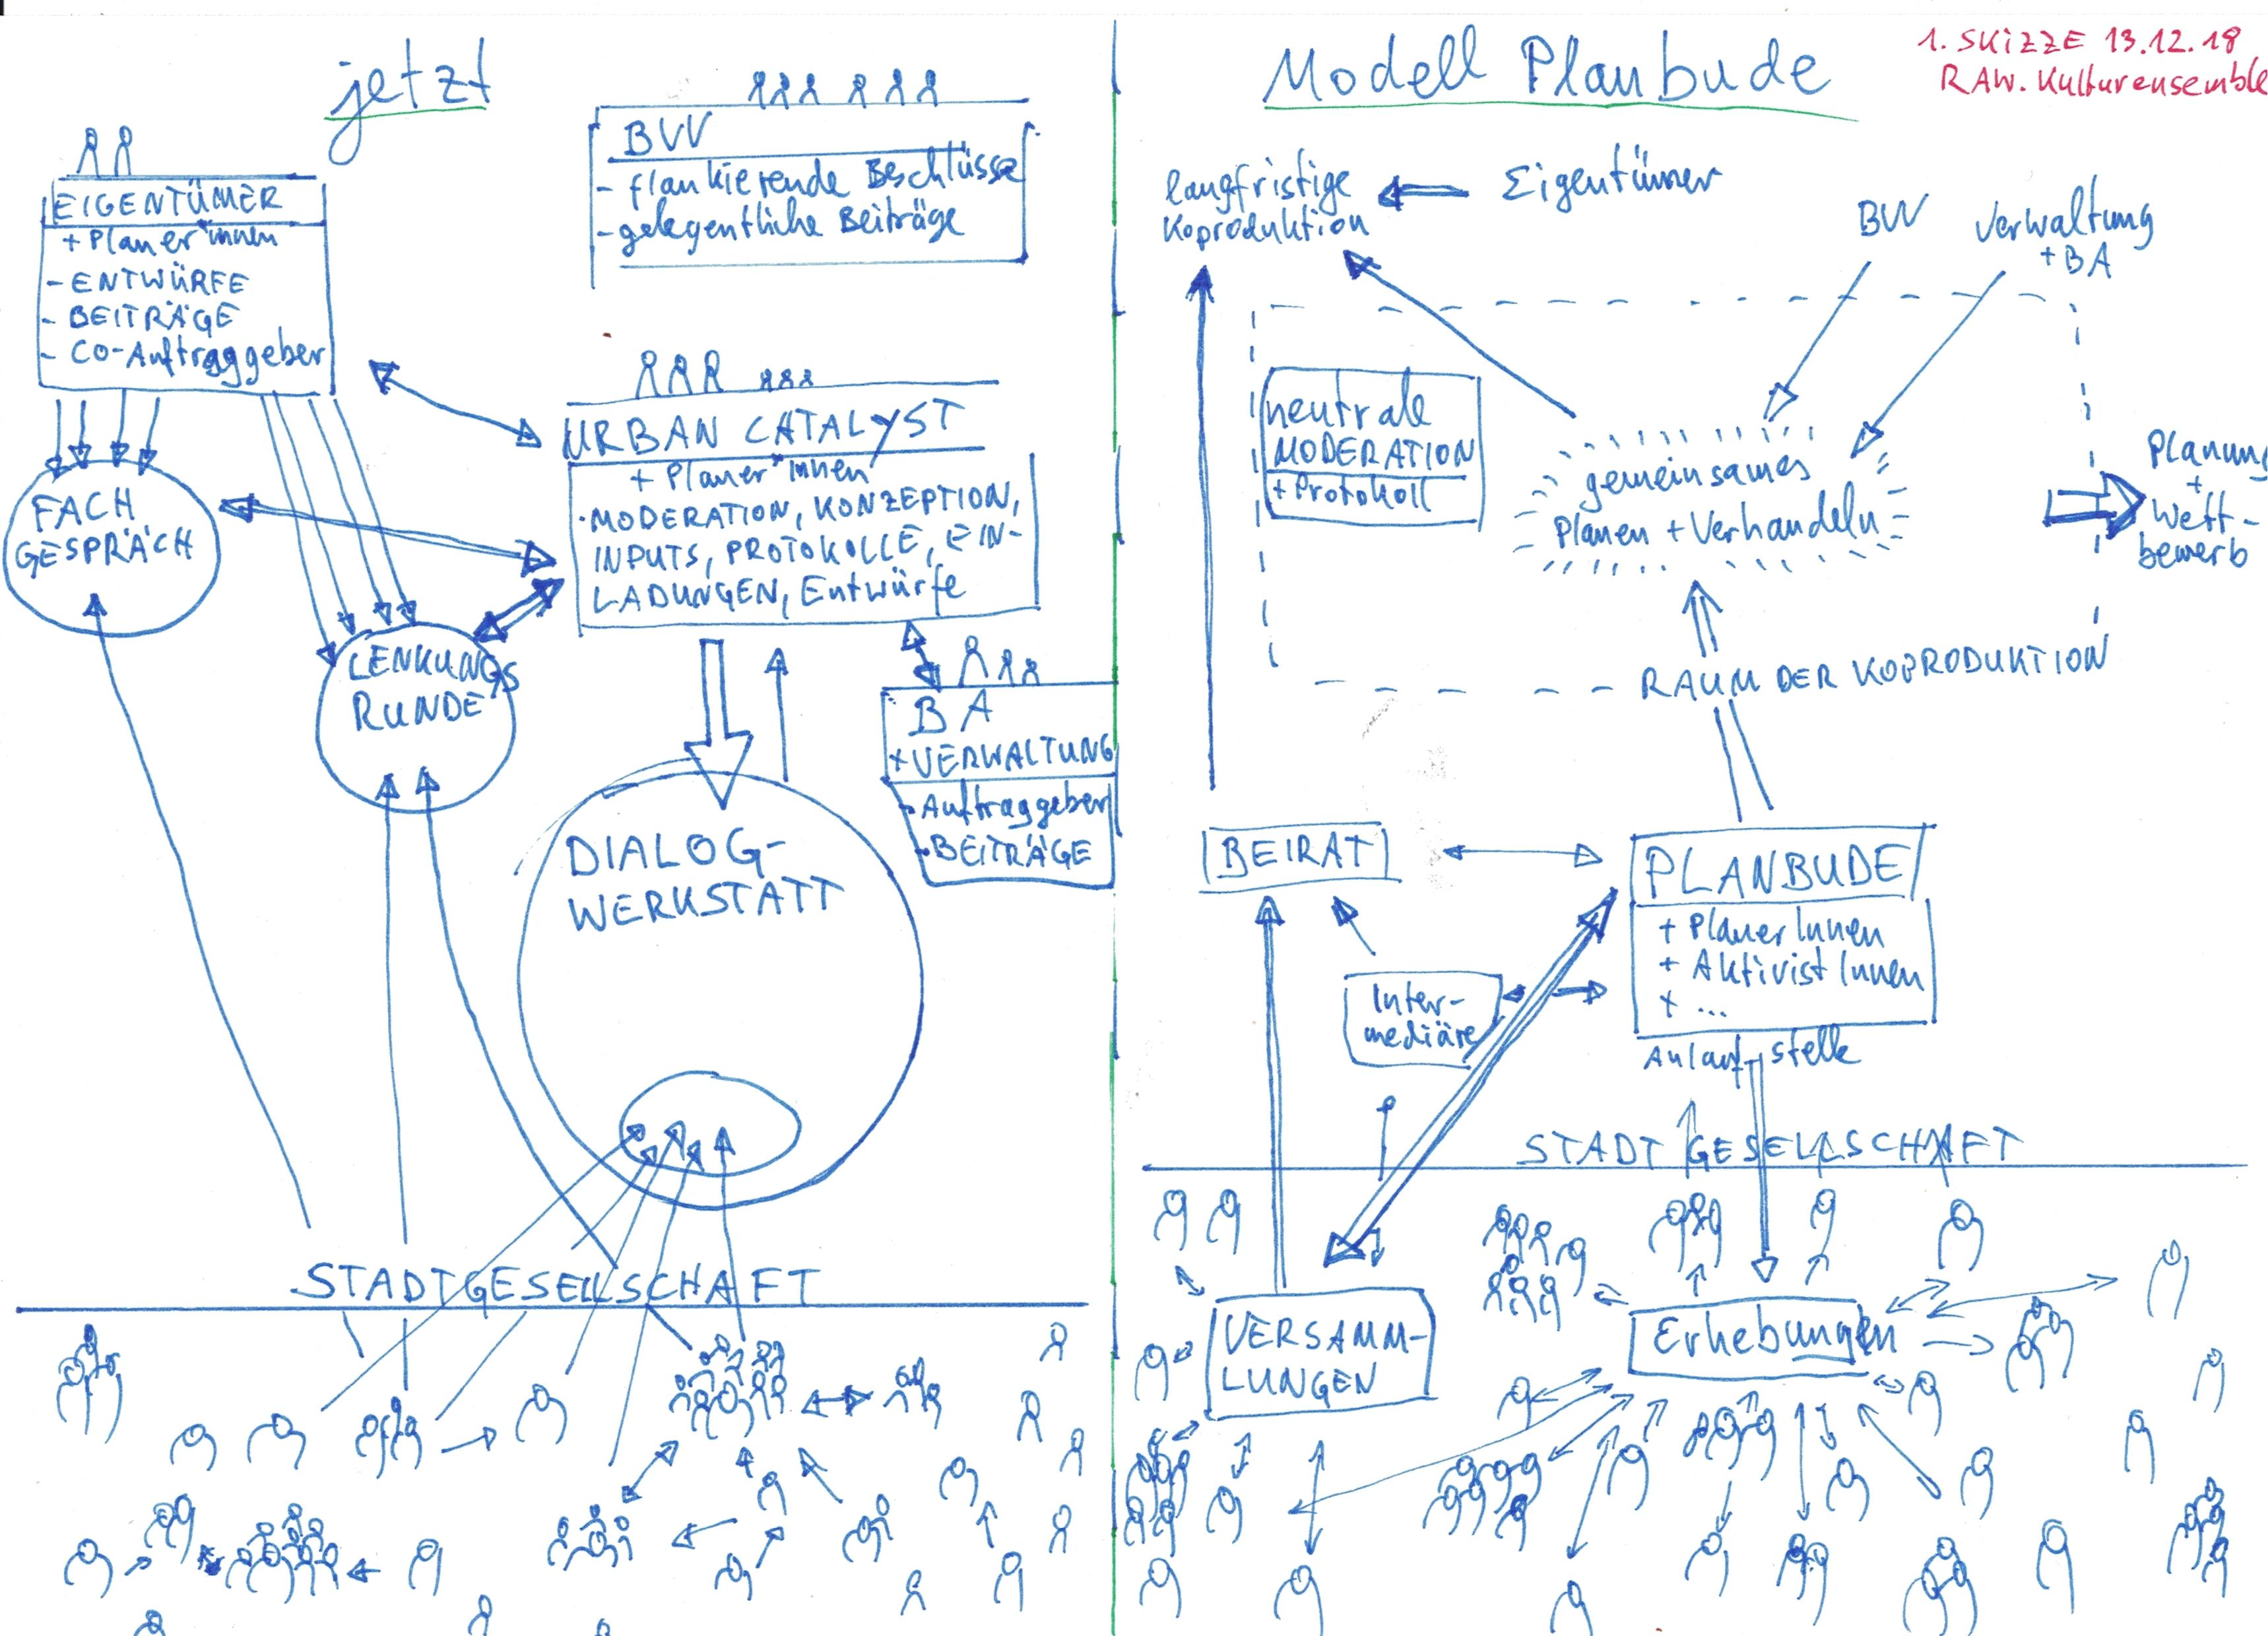 jetzt
EIGENTÜMER
+ Planer*innen
- ENTWÜRFE
- BEITRÄGE
- CO-Auftraggeber
BVV
- flankierende Beschlüsse
- gelegentliche Beiträge
URBAN CATALYST
+ Planer*innen
· MODERATION, KONZEPTION,
INPUTS, PROTOKOLLE, EIN-
LADUNGEN, Entwürfe
FACH
GESPRÄCH
LENKUNGS
RUNDE
BA
+ VERWALTUNG
- Auftraggeber
- BEITRÄGE
DIALOG-
WERKSTATT
STADTGESELLSCHAFT
Modell Planbude
1. SKIZZE 13.12.18
RAW. Kulturensemble
langfristige
Koproduktion
Eigentümer
BVV
Verwaltung
+ BA
neutrale
MODERATION
+ Protokoll
gemeinsames
Planen + Verhandeln
Planung
+
Wett-
bewerb
RAUM DER KOPRODUKTION
BEIRAT
PLANBUDE
+ PlanerInnen
+ AktivistInnen
+ ...
Anlaufstelle
Inter-
mediäre
STADTGESELLSCHAFT
VERSAMM-
LUNGEN
Erhebungen